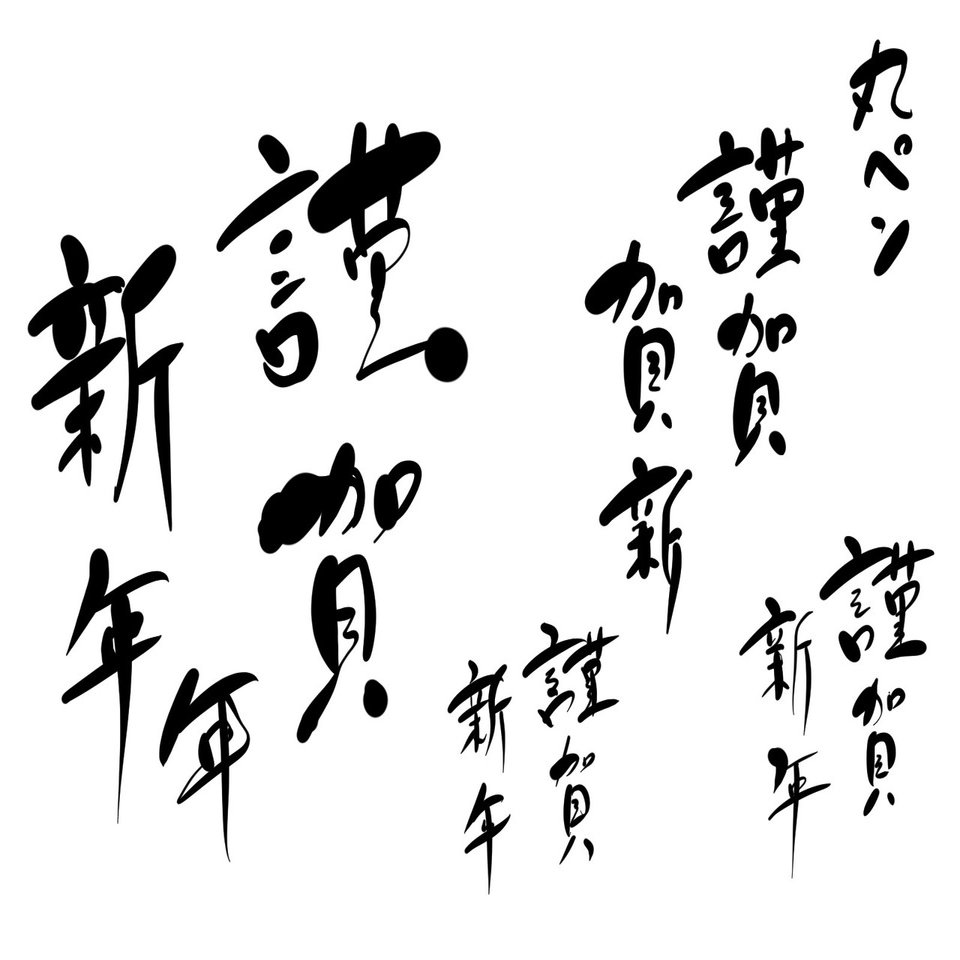 丸ペン
謹賀
賀新
謹賀
新年
謹賀
新年
謹賀
新年
年